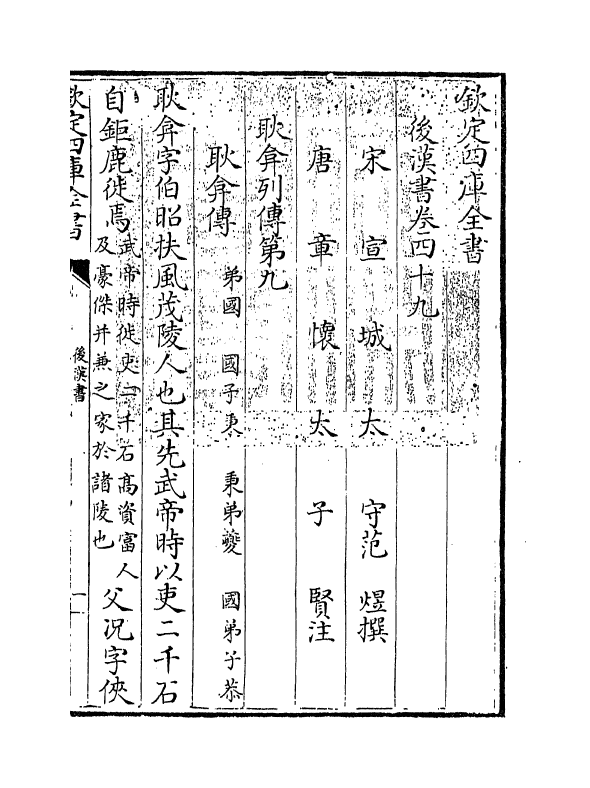 欽定四庫全書
後漢書卷四十九
宋宣城太守范煜撰
唐章懷太子賢注
耿弇列傳第九
耿弇傳 弟國 國子秉 秉弟夔 國弟子恭
耿弇字伯昭扶風茂陵人也其先武帝時以吏二千石
自鉅鹿徙焉武帝時徙吏二千石高資富人及豪傑并兼之家於諸陵也父况字俠
欽定四庫全書
後漢書
一